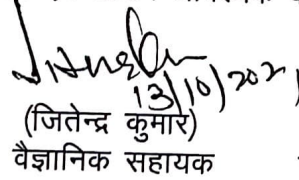 13/10/2021
(जितेन्द्र कुमार)
वैज्ञानिक सहायक